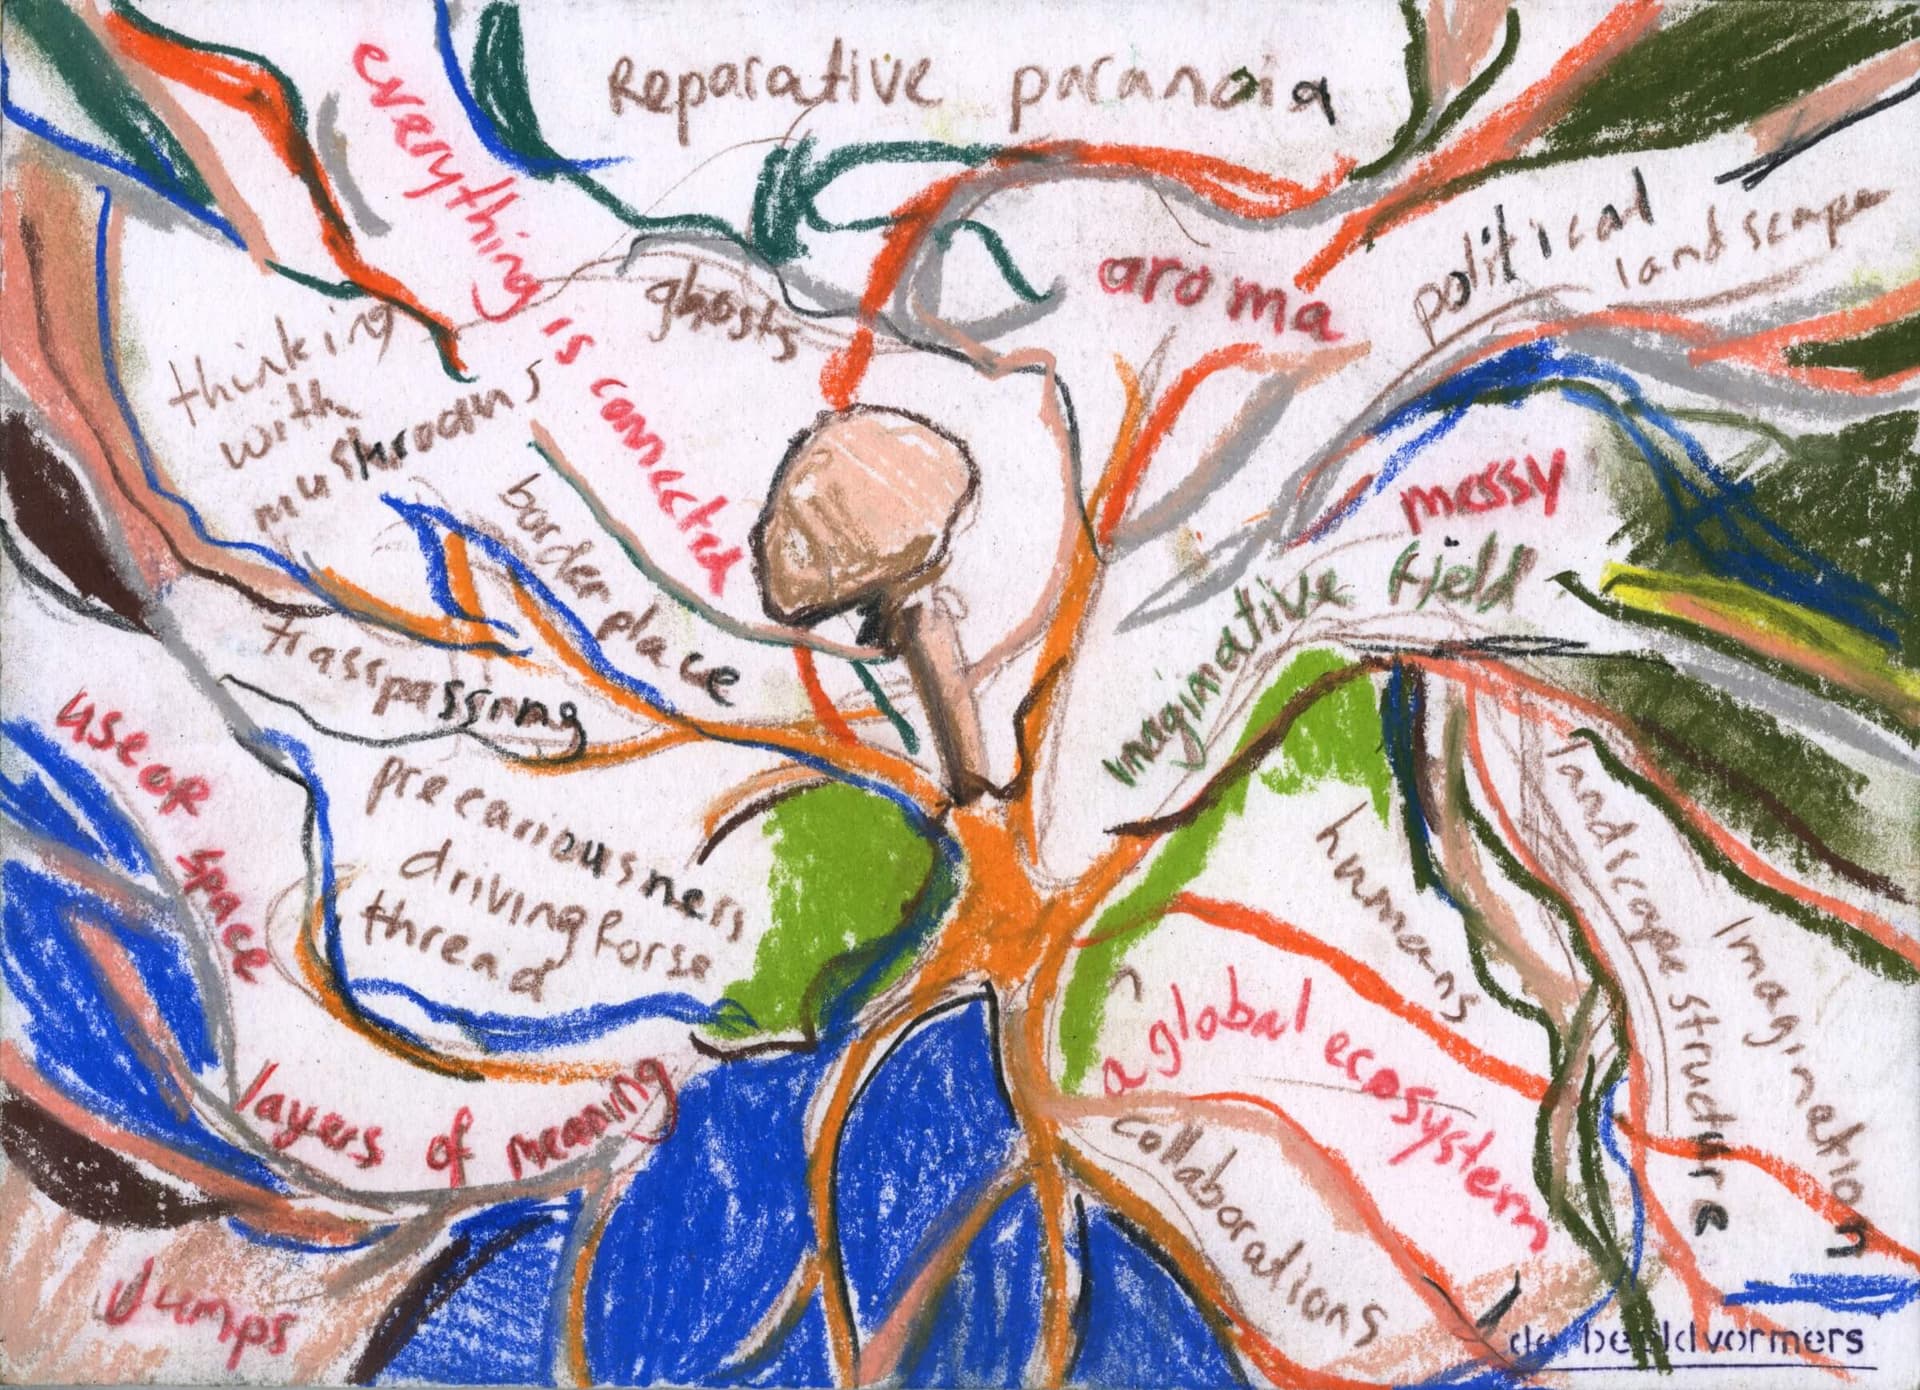 Reparative paranoia
everything is connected
ghosts
aroma
political
landscape
thinking
with
mushrooms
border place
messy
imaginative field
trasspassing
use or
space
precariousness
driving forse
thread
humans
landscape structure
Imagination
a global ecosystem
layers of meaning
collaborations
dumps
de beeldvormers